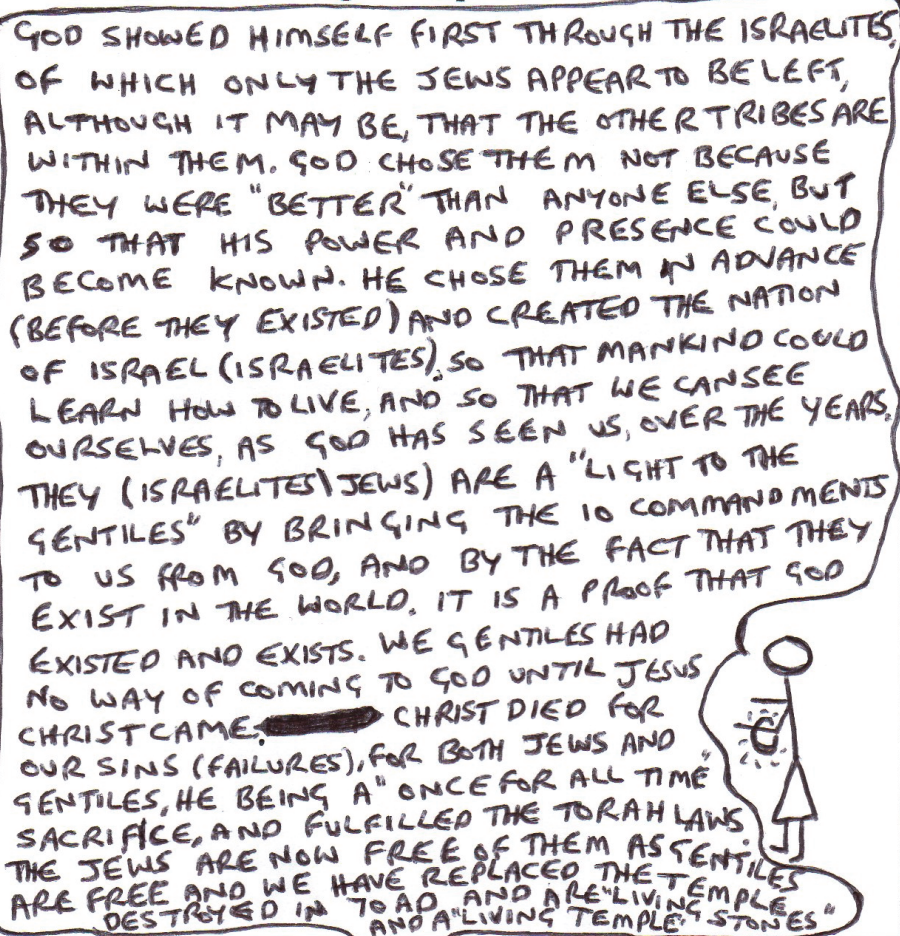 GOD SHOWED HIMSELF FIRST THROUGH THE ISRAELITES,
OF WHICH ONLY THE JEWS APPEAR TO BE LEFT,
ALTHOUGH IT MAY BE, THAT THE OTHER TRIBES ARE
WITHIN THEM. GOD CHOSE THEM NOT BECAUSE
THEY WERE "BETTER" THAN ANYONE ELSE, BUT
SO THAT HIS POWER AND PRESENCE COULD
BECOME KNOWN. HE CHOSE THEM IN ADVANCE
(BEFORE THEY EXISTED) AND CREATED THE NATION
OF ISRAEL (ISRAELITES), SO THAT MANKIND COULD
LEARN HOW TO LIVE, AND SO THAT WE CAN SEE
OURSELVES, AS GOD HAS SEEN US, OVER THE YEARS.
THEY (ISRAELITES\JEWS) ARE A "LIGHT TO THE
GENTILES" BY BRINGING THE 10 COMMANDMENTS
TO US FROM GOD, AND BY THE FACT THAT THEY
EXIST IN THE WORLD. IT IS A PROOF THAT GOD
EXISTED AND EXISTS. WE GENTILES HAD
NO WAY OF COMING TO GOD UNTIL JESUS
CHRIST CAME. CHRIST DIED FOR
OUR SINS (FAILURES), FOR BOTH JEWS AND
GENTILES, HE BEING A "ONCE FOR ALL TIME"
SACRIFICE, AND FULFILLED THE TORAH LAWS.
THE JEWS ARE NOW FREE OF THEM AS GENTILES
ARE FREE AND WE HAVE REPLACED THE TEMPLE
DESTROYED IN 70 AD AND ARE "LIVING STONES"
AND A "LIVING TEMPLE"